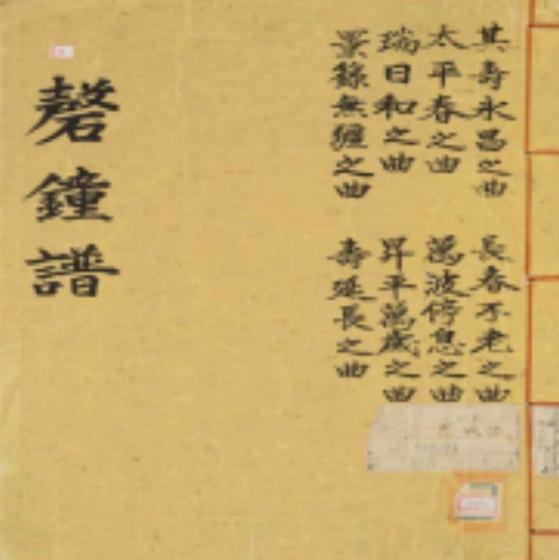 其壽永昌之曲
長春不老之曲
太平春之曲
萬波停息之曲
瑞日和之曲
昇平萬歲之曲
景籙無疆之曲
壽延長之曲
磬鐘譜